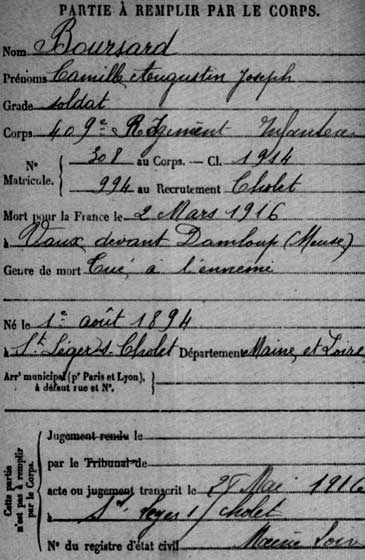 PARTIE À REMPLIR PAR LE CORPS.
Nom Boursard
Prénoms Camille Augustin Joseph
Grade soldat
Corps 409e Régiment Infanterie
N° Matricule. { 308 au Corps. — Cl. 1914
994 au Recrutement Cholet
Mort pour la France le 2 Mars 1916
à Vaux devant Damloup (Meuse)
Genre de mort Tué à l'ennemi
Né le 1e août 1894
à St Léger s. Cholet Département Maine et Loire
Arrt municipal (pr Paris et Lyon), à défaut rue et N°. }
Cette partie n'est pas à remplir par le Corps. {
Jugement rendu le
par le Tribunal de
acte ou jugement transcrit le 28 Mai 1916
à St Leger s/ Cholet
N° du registre d'état civil Maine Loire